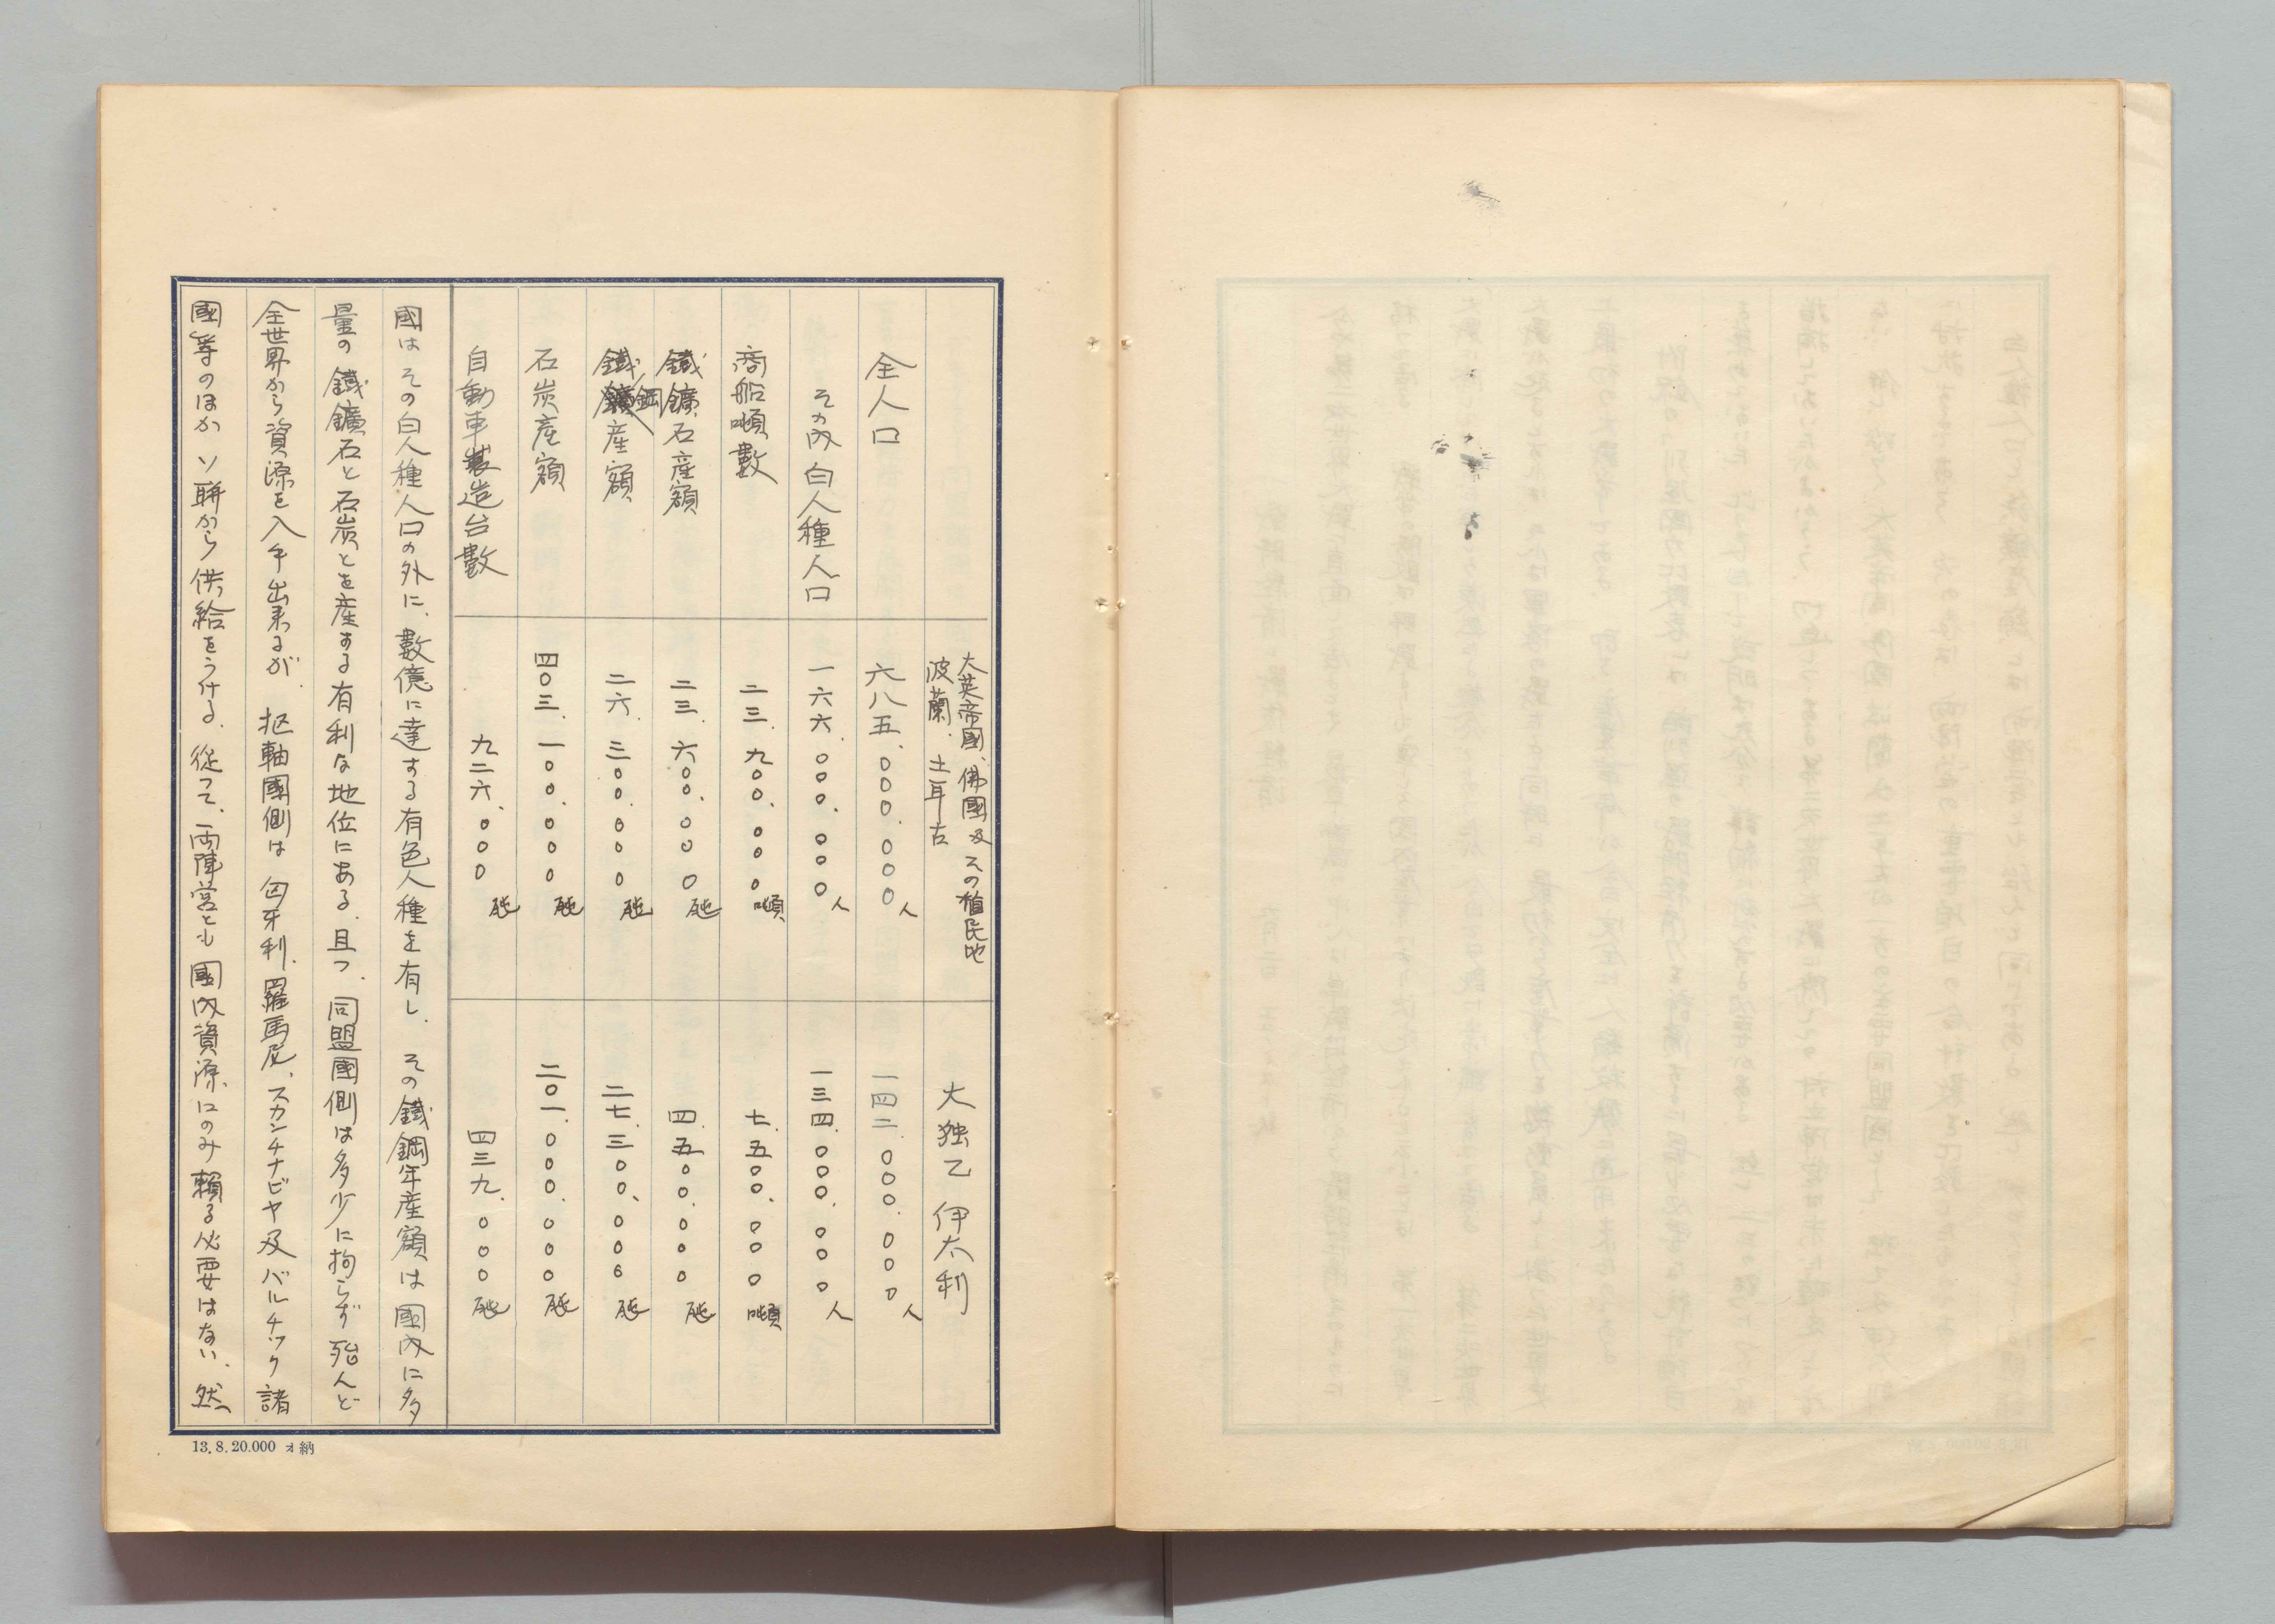 大英帝國、佛國及その植民地
波蘭、土耳古
大独乙 伊太利
全人口 六八五、〇〇〇、〇〇〇人 一四二、〇〇〇、〇〇〇人
その内白人種人口 一六六、〇〇〇、〇〇〇人 一三四、〇〇〇、〇〇〇人
商船噸數 二三、九〇〇、〇〇〇噸 七、五〇〇、〇〇〇噸
鐵鑛石産額 二三、六〇〇、〇〇〇瓲 四、五〇〇、〇〇〇瓲
鐵鋼産額 二六、三〇〇、〇〇〇瓲 二七、三〇〇、〇〇〇瓲
石炭産額 四〇三、一〇〇、〇〇〇瓲 二〇一、〇〇〇、〇〇〇瓲
自動車製造台數 九二六、〇〇〇瓲 四三九、〇〇〇瓲
國はその白人種人口の外に、數億に達する有色人種を有し、その鐵鋼年産額は國内に多
量の鐵鑛石と石炭とを産する有利な地位にある、且つ、同盟國側は多少に拘らず殆んど
全世界から資源を入手出来るが、枢軸國側は匈牙利、羅馬尼、スカンチナビヤ及バルチック諸
國等のほかソ聯から供給をうける、從つて、両陣営とも國内資源にのみ賴る必要はない、然
13.8.20.000 ォ納